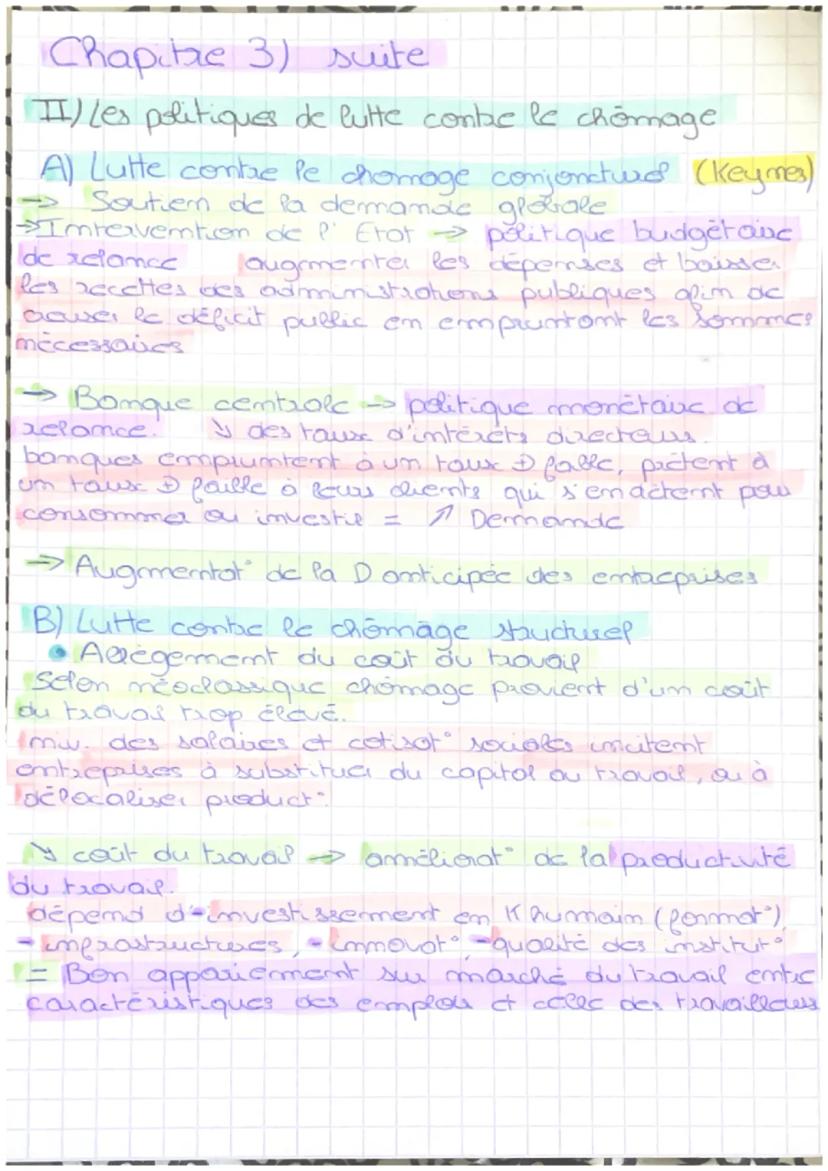 Chapitre 3) suite
II) Les politiques de lutte contre le chômage
A) Lutte contre le chomage conjoncturel (Keynes)
→ Soutien de la demande globale
→ Intervention de l'Etat → politique budgétaire
de relance augmenter les dépenses et baisser
les recettes des administrations publiques afin de
creuser le déficit public en empruntant les sommes
nécessaires
→ Banque centrale → politique monétaire de
relance. ↘ des taux d'intérêts directeurs.
banques empruntent à un taux ⊕ faible, prêtent à
un taux ⊕ faible à leurs clients qui s'endettent pour
consommer ou investir = ↗ Demande
→ Augmentat° de la D anticipée des entreprises
B) Lutte contre le chômage structurel
• Allègement du coût du travail
Selon néoclassique chômage provient d'un coût
du travail trop élevé.
niv. des salaires et cotisat° sociales incitent
entreprises à substituer du capital au travail, ou à
délocaliser product°
↘ coût du travail → améliorat° de la productivité
du travail.
dépend d'-investissement en K humain (format°)
- infrastructures, - innovat° - qualité des institut°
= Bon appariement sur marché du travail entre
caractéristiques des emplois et celles des travailleurs